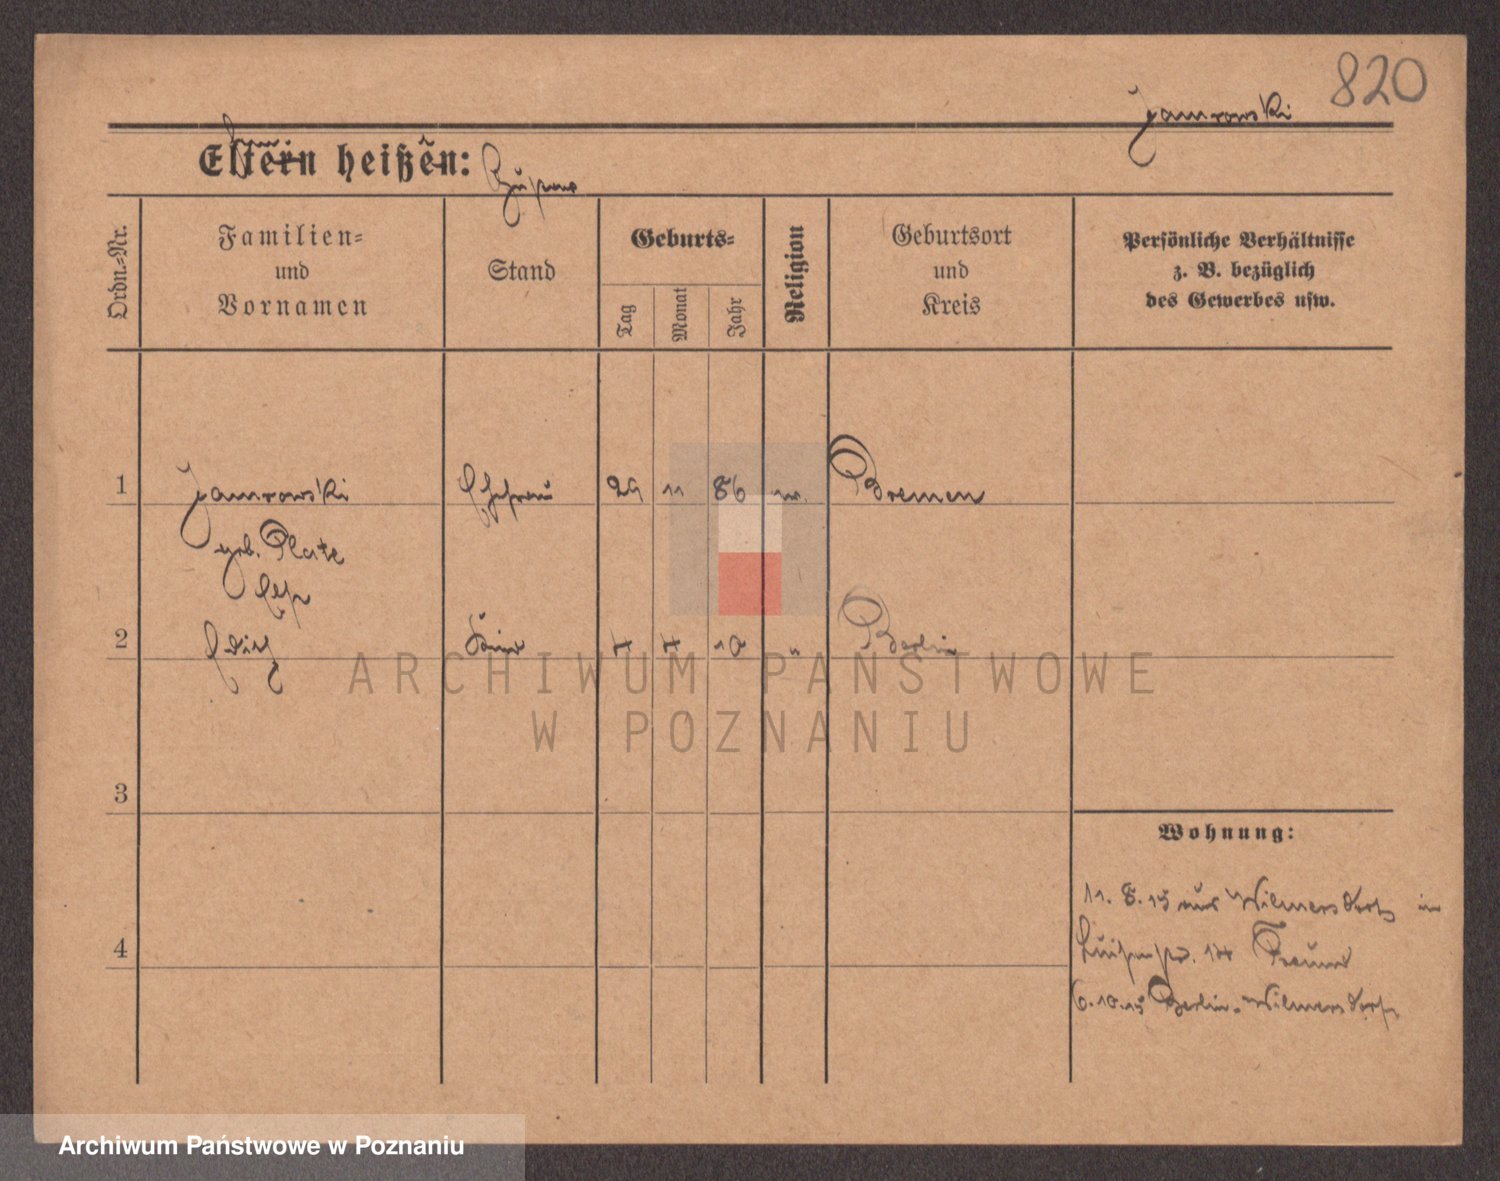 820
Jamrowski
Eltern heißen:
Ordn.=Nr.
Familien=
und
Vornamen
Stand
Geburts=
Tag
Monat
Jahr
Religion
Geburtsort
und
Kreis
Persönliche Verhältnisse
z. B. bezüglich
des Gewerbes usw.
1
Jamrowski
Ehefrau
29
11
86
Bremen
geb. Plate
2
Kind
4
4
10
"
Berlin
3
4
Wohnung:
11. 8. 15 aus Wilmersdorf in
Luisenstr. 14
6.10.15 Berlin-Wilmersdorf
ARCHIWUM PAŃSTWOWE
W POZNANIU
Archiwum Państwowe w Poznaniu